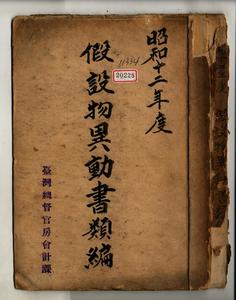 昭和十二年度
11334
20228
假設物異動書類編
臺灣總督官房會計課